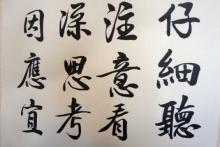 仔細聽
注意看
深思考
因應宜